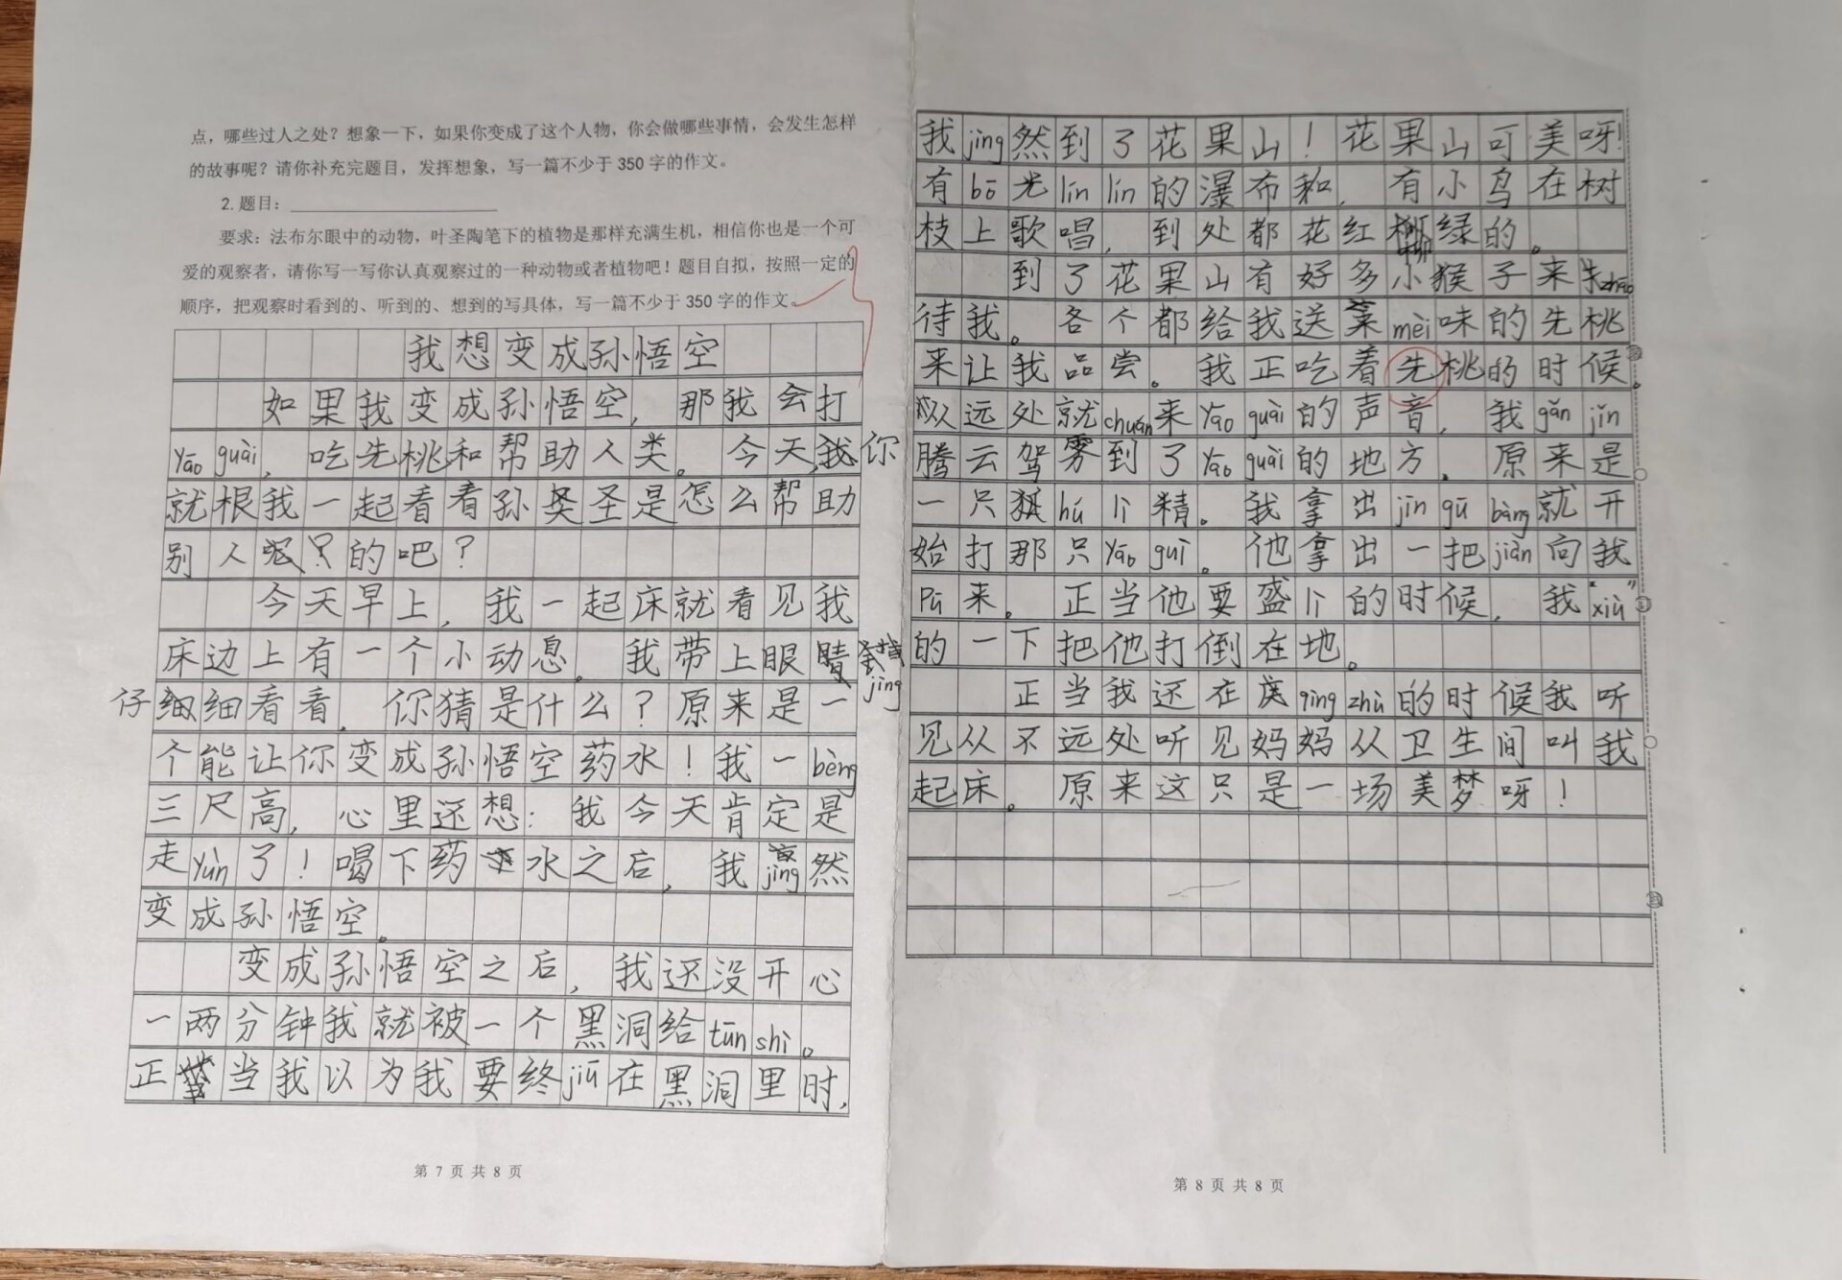 点，哪些过人之处？想象一下，如果你变成了这个人物，你会做哪些事情，会发生怎样
的故事呢？请你补充完题目，发挥想象，写一篇不少于 350 字的作文。
2. 题目：
要求：法布尔眼中的动物，叶圣陶笔下的植物是那样充满生机，相信你也是一个可
爱的观察者，请你写一写你认真观察过的一种动物或者植物吧！题目自拟，按照一定的
顺序，把观察时看到的、听到的、想到的写具体，写一篇不少于 350 字的作文。
我想变成孙悟空
如果我变成孙悟空，那我会打
yāo guài，吃先桃和帮助人类。今天，你
就根我一起看看孙圣是怎么帮助
别人的吧？
今天早上，我一起床就看见我
床边上有一个小动息。我带上眼jìng
仔细细看看，你猜是什么？原来是一
个能让你变成孙悟空药水！我一bèng
三尺高，心里还想：我今天肯定是
走yùn了！喝下药水之后，我jìng然
变成孙悟空。
变成孙悟空之后，我还没开心
一两分钟我就被一个黑洞给tūn shì。
正当我以为我要终jiū在黑洞里时，
第 7 页 共 8 页
我jìng然到了花果山！花果山可美呀！
有bō光lín lín的瀑布和，有小鸟在树
枝上歌唱，到处都花红绿的。
到了花果山有好多小猴子来zhāo
待我。各个都给我送měi味的先桃
来让我品尝。我正吃着先桃的时候。
从远处就chuán来yāo guài的声音，我gǎn jǐn
腾云驾雾到了yāo guài的地方，原来是
一只hú lí精。我拿出jīn gū bàng就开
始打那只yāo guì。他拿出一把jiàn向我
pū来。正当他要盛lì的时候，我“xiù”
的一下把他打倒在地。
正当我还在qìng zhù的时候我听
见从不远处听见妈妈从卫生间叫我
起床。原来这只是一场美梦呀！
第 8 页 共 8 页